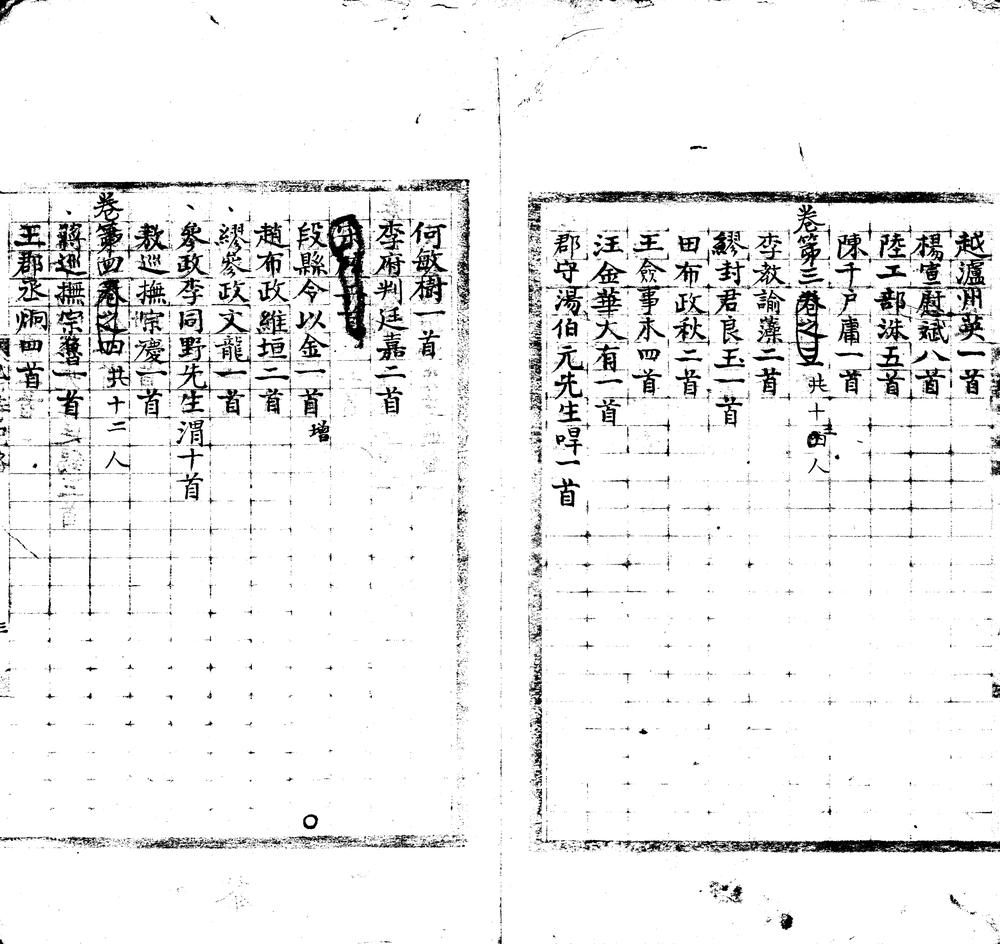 越瀘州英一首
楊宣慰斌八首
陸工部洙五首
陳千戶庸一首
卷第三卷之三 共十四人
李教諭藻二首
繆封君良玉一首
田布政秋二首
王僉事木四首
汪金華大有一首
郡守湯伯元先生㖔一首
何敏樹一首
李府判廷嘉二首
段縣令以金一首 增
趙布政維垣二首
繆參政文龍一首
參政李同野先生渭十首
敖巡撫宗慶一首
卷第四卷之四 共十二人
蔣巡撫宗魯一首
王郡丞炯四首